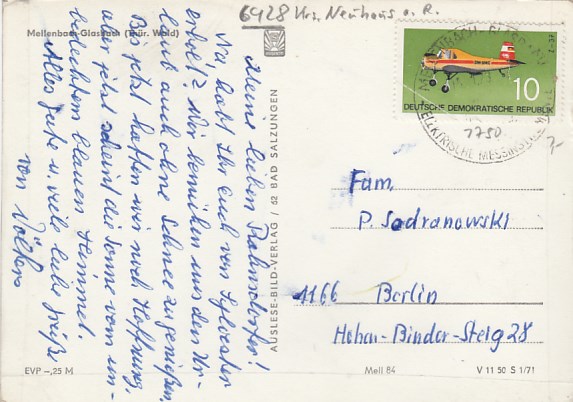 6428 Krs. Neuhaus a. R.
Mellenbach-Glasbach (Thür. Wald)
Meine lieben Rahnsdorfer!
Na, habt Ihr Euch von Sylvester
erholt? Wir bemühen uns den Ur-
laub auch ohne Schnee zu genießen.
Bis jetzt hatten wir noch Hoffnung,
aber jetzt scheint die Sonne vom un-
bedeckten blauen Himmel.
Alles Gute u. viele liebe Grüße
von
AUSLESE-BILD-VERLAG / 62 BAD SALZUNGEN
10
DEUTSCHE DEMOKRATISCHE REPUBLIK
1750
Fam.
P. Sadranowski
1166 Berlin
Hohen-Binder-Steig 28
EVP -,25 M
Mell 84
V 11 50 S 1/71